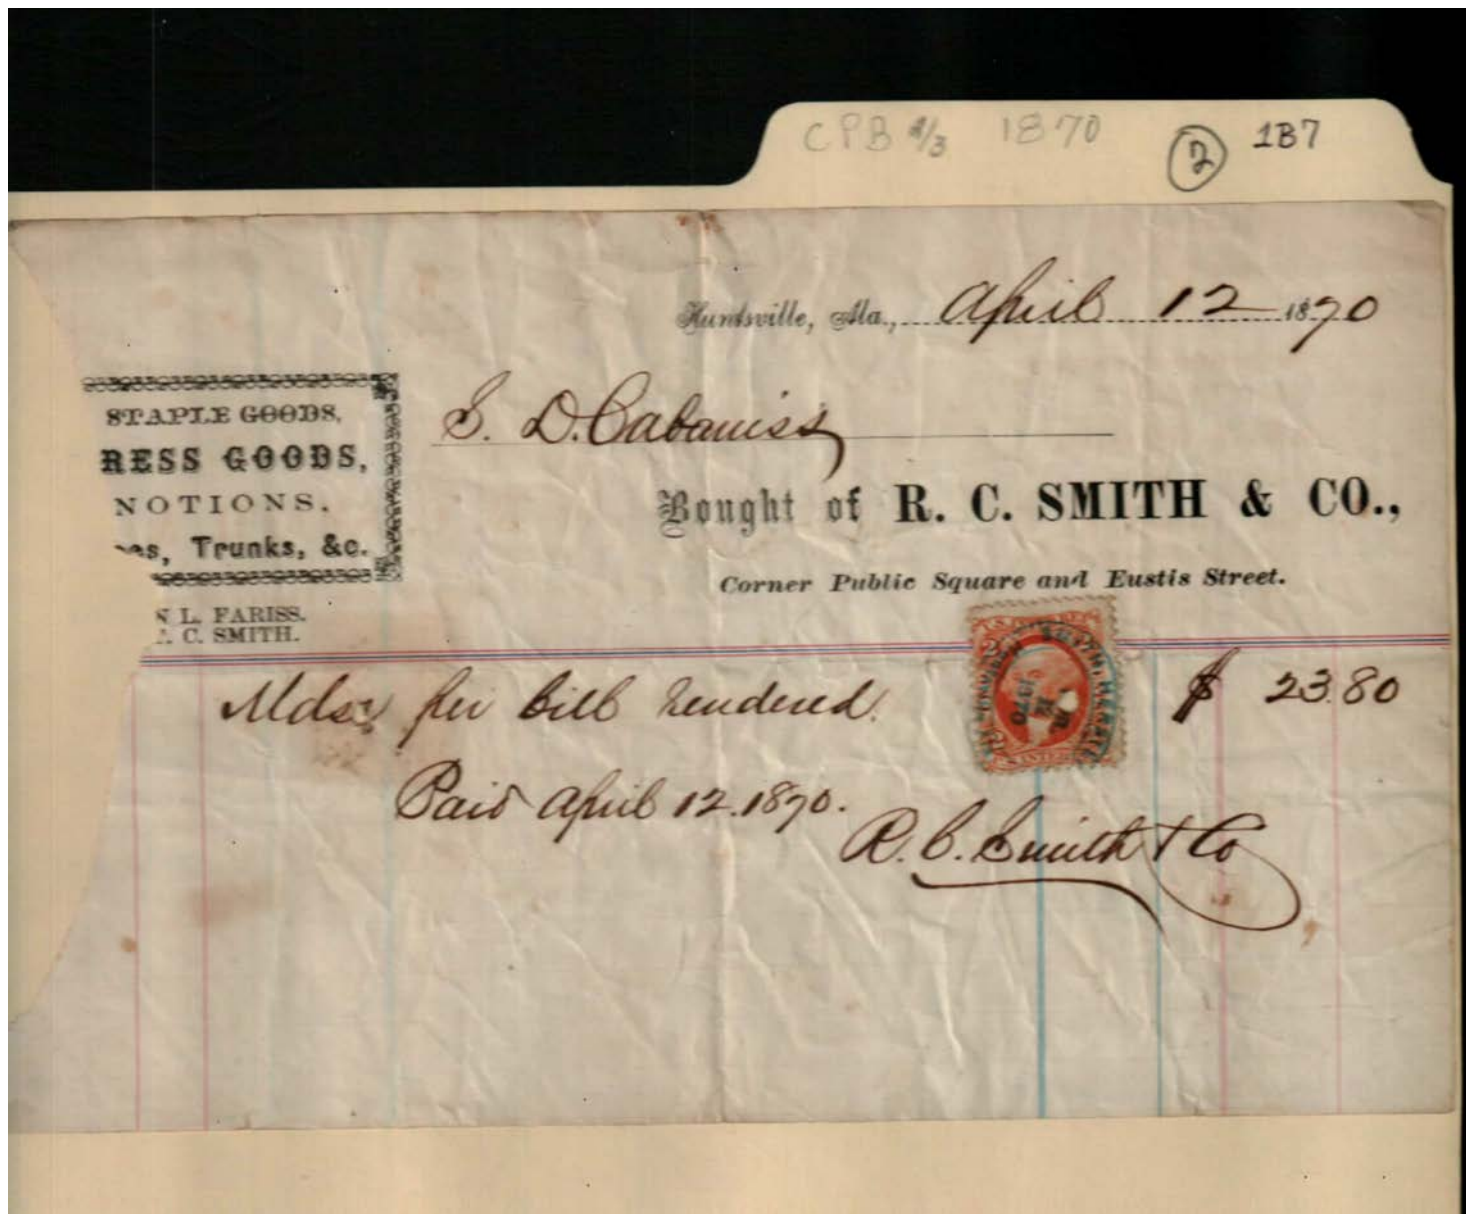 CPB 2/3 1870 2 1B7
Huntsville, Ala., April 12 1870
STAPLE GOODS,
RESS GOODS,
NOTIONS.
es, Trunks, &c.
L. FARISS.
C. SMITH.
S. D. Cabaniss
Bought of R. C. SMITH & CO.,
Corner Public Square and Eustis Street.
Mdse per bill rendered. $ 23.80
Paid April 12. 1870.
R. C. Smith & Co
1870